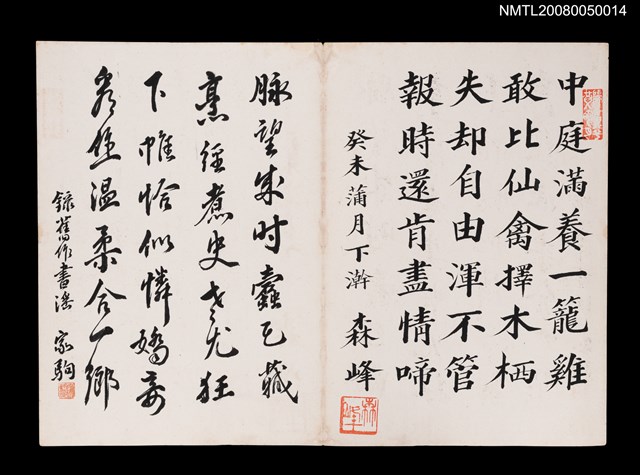 NMTL20080050014
中庭滿養一籠雞
敢比仙禽擇木栖
失却自由渾不管
報時還肯盡情啼
癸未蒲月下澣 森峰
森峰
脉望成時蠹已藏
烹經煮史老尤狂
下帷恰似憐嬌妾
溫柔合一鄉
錄舊作書溎 家駒